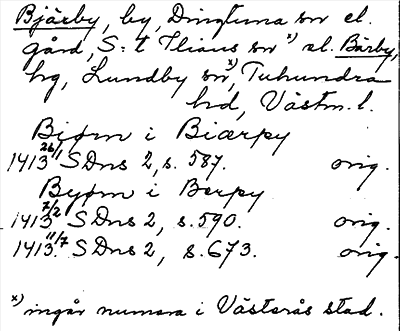 Bjärby, by, Dingtuna sn el.
gård, S:t Ilians sn x) el. Bärby,
hg, Lundby sn, x) Tuhundra
hd, Västm. l.
Biørn i Biærpy
1413 26/1 SDns 2, s. 587. orig.
Byørn i Berpy
1413 7/2 SDns 2, s. 590. orig.
1413 11/7 SDns 2, s. 673. orig.
x) ingår numera i Västerås stad.